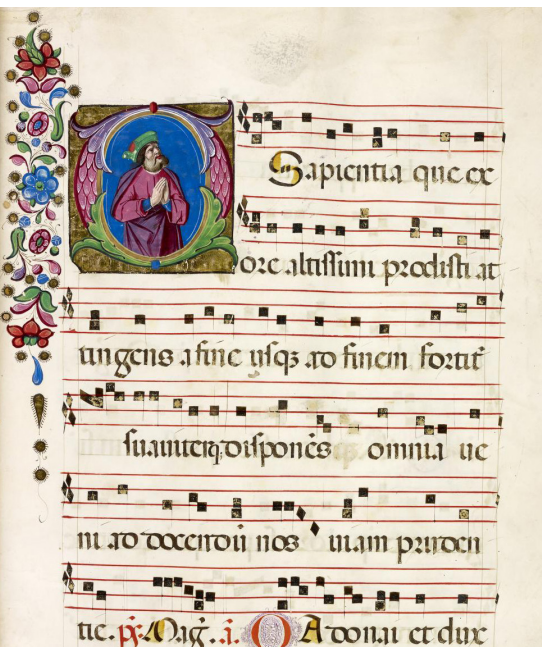 O Sapientia que ex
ore altissimi prodisti at
tingens a fine usqȝ ad finem fortiṫ
suauiterqȝ disponēs omnia ue
ni ad docendū nos uiam pruden
tie. p̄s. Mag̅. a̅. O Adonai et dux